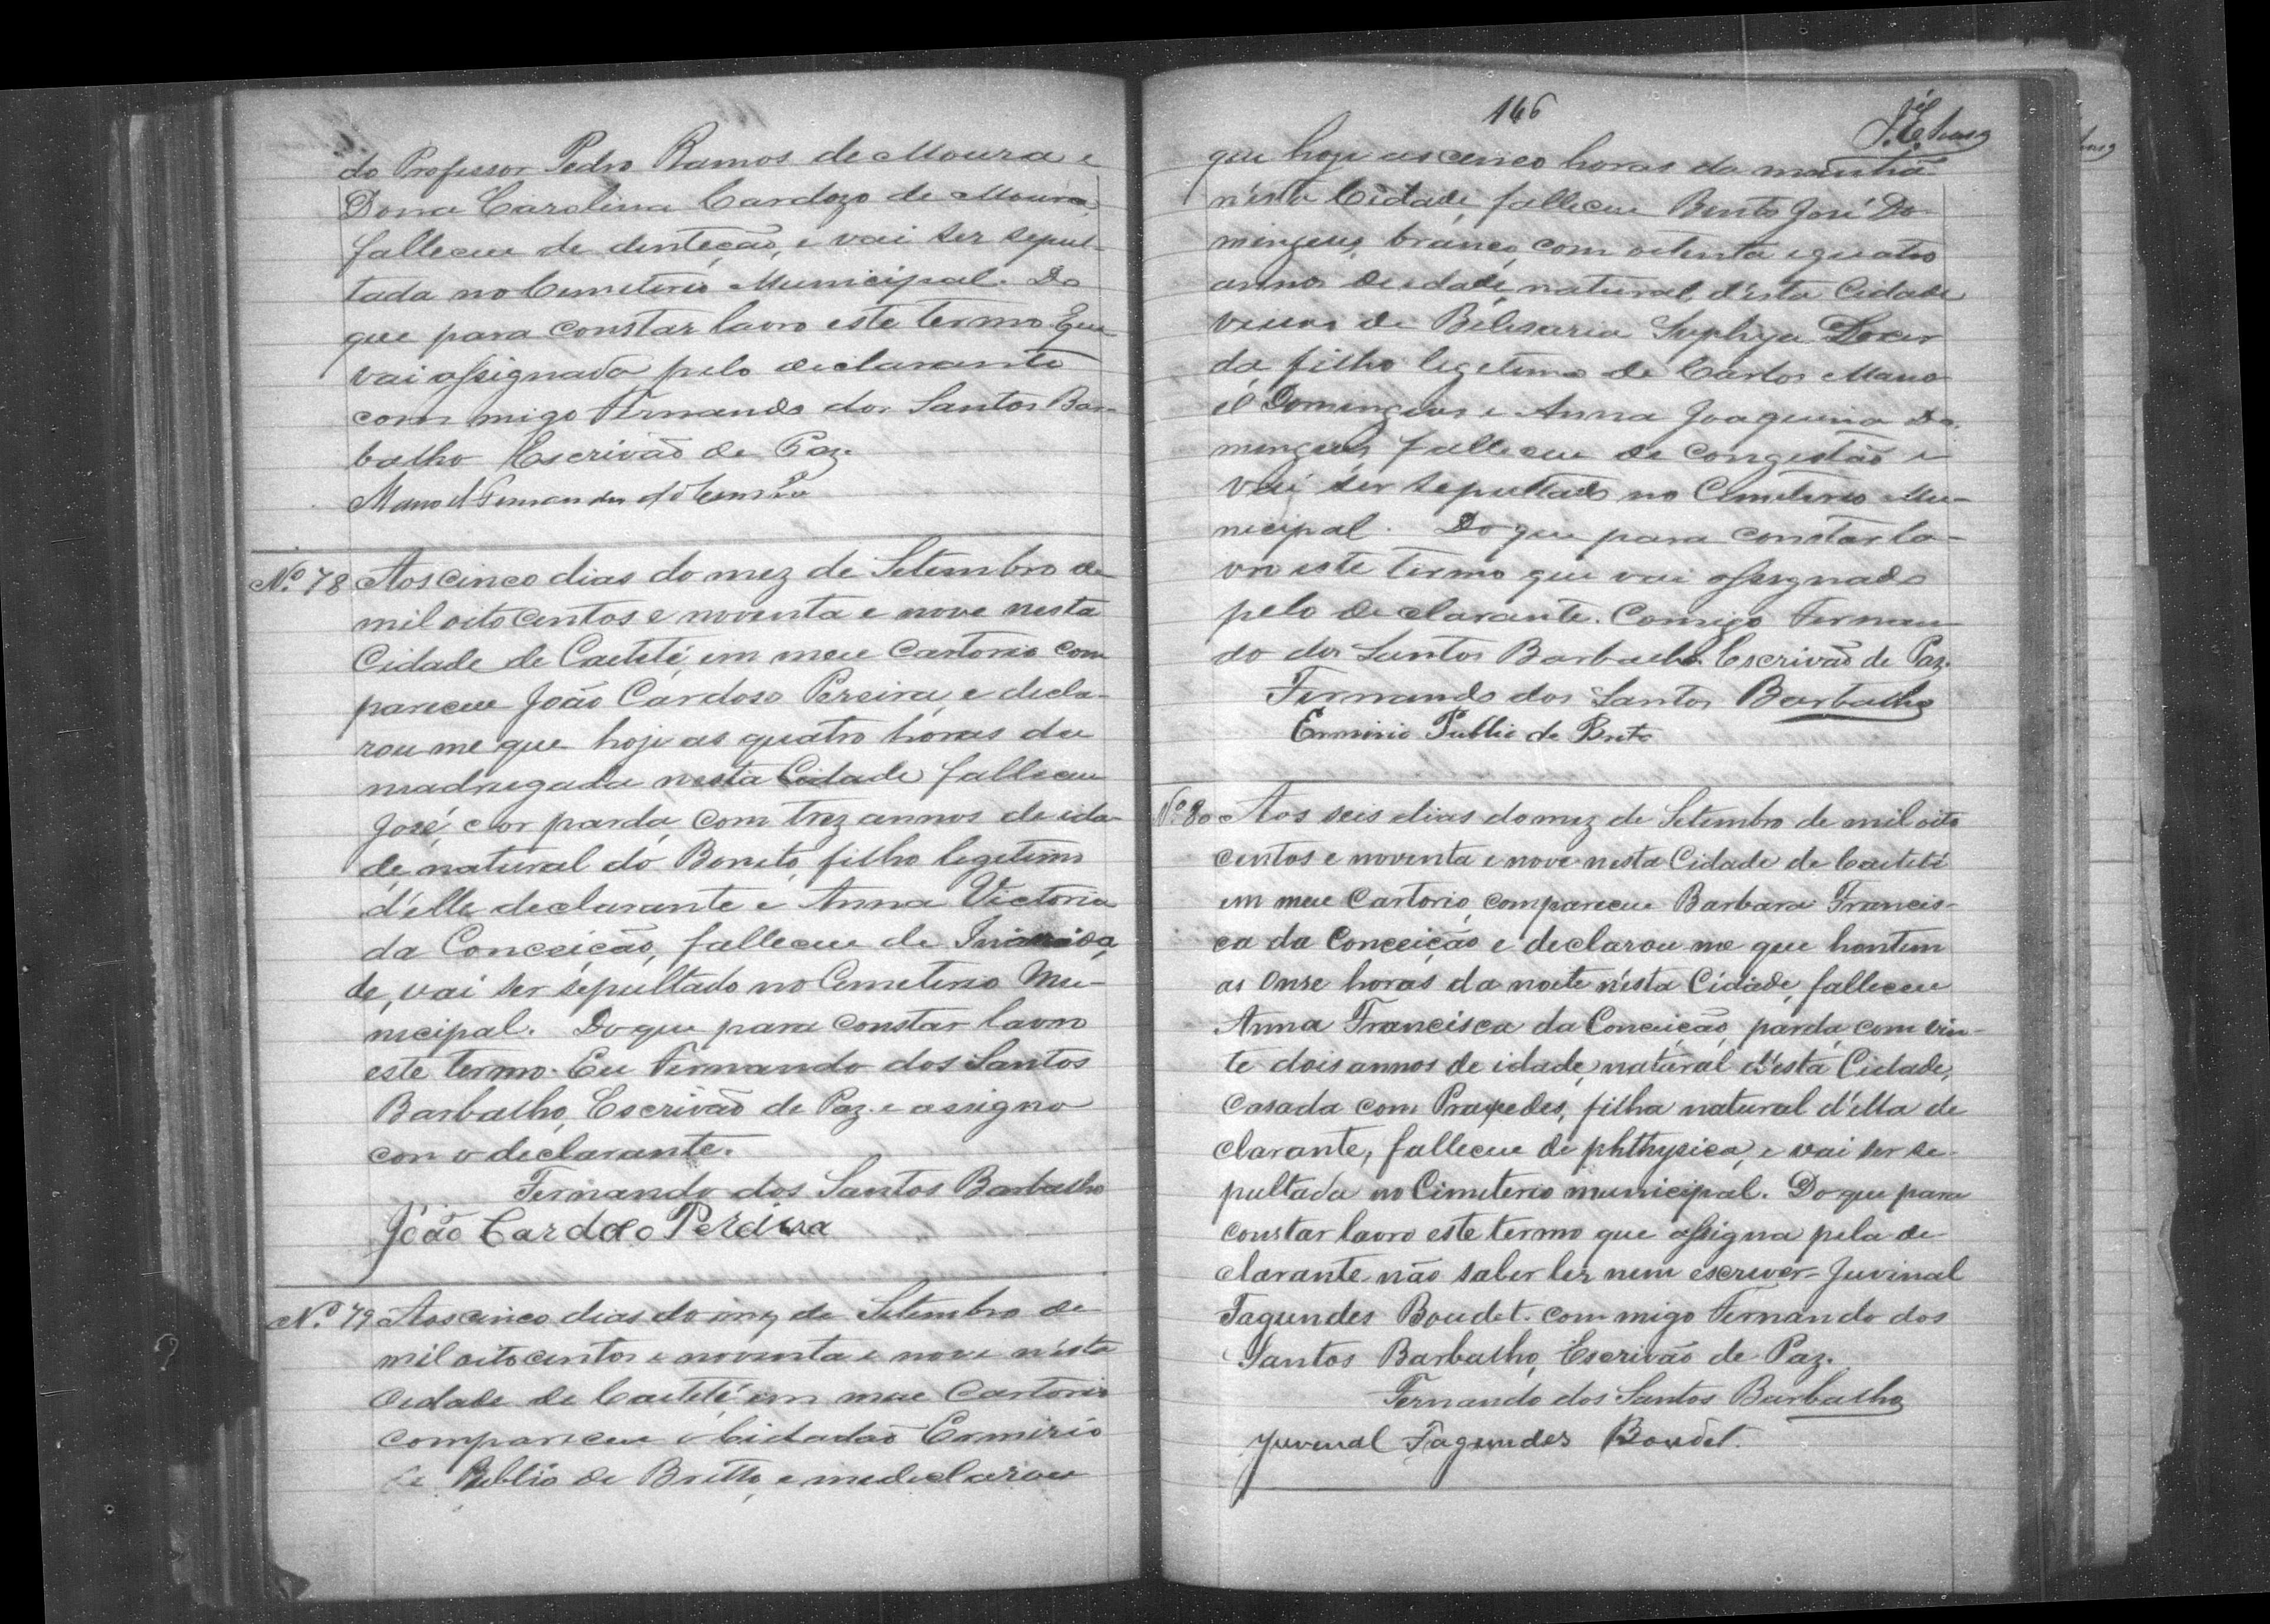 do Professor Pedro Ramos de Moura e
Dona Carolina Cardozo de Moura,
falleceu de dentecção, e vai ser sepul-
tada no Cemeterio Municipal. Do
que para constar lavro este termo que
vai assignado pelo declarante
com migo Fernando dos Santos Bar-
balho Escrivão de Paz.
Manoel Fernandes
Nº 78 Aos cinco dias do mez de Setembro de
mil oito centos e noventa e nove nesta
Cidade de Caeteté, em meu Cartorio com
pareceu João Cardoso Pereira, e decla-
rou me que hoje as quatro horas da
madrugada nesta Cidade falleceu
José, cor parda, com trez annos de ida-
de, natural do Bonito, filho legitimo
d'elle declarante e Anna Victoria
da Conceição, falleceu de
de, vai ser sepultado no Cemeterio Mu-
nicipal. Do que para constar lavro
este termo. Eu Fernando dos Santos
Barbalho, Escrivão de Paz e assigno
con o declarante.
Fernando dos Santos Barbalho
João Cardoso Pereira
Nº 79 Aos cinco dias do mez de Setembro de
mil oito centos e noventa e nove n'esta
Cidade de Caeteté em meu Cartorio
compareceu o Cidadão Ermirio
Publio de Britto, e me declarou
146
que hoje as cinco horas da manhã
n'esta Cidade, falleceu Bento José Do-
mingues, branco, com oitenta e quatro
annos de idade, natural d'esta Cidade
viuvo de Belisaria
da filho legitimo de Carlos Mano
el Domingues e Anna Joaquina Do-
mingues, falleceu de congestão e
vai ser sepultado no Cemeterio Mu-
nicipal. Do que para constar la-
vro este termo que vai assignado
pelo declarante. Comigo Fernan-
do dos Santos Barbalho Escrivão de Paz.
Fernando dos Santos Barbalho
Ermirio Publio de Brito
Nº 80 Aos seis dias do mez de Setembro de mil oito
centos e noventa e nove nesta Cidade de Caeteté
em meu Cartorio, compareceu Barbara Francis-
ca da Conceição e declarou me que hontem
as onse horas da noite n'esta Cidade, falleceu
Anna Francisca da Conceição, parda, com vin-
te dois annos de idade, natural d'esta Cidade,
casada com Praxedes, filha natural d'ella de
clarante, falleceu de phthysica, e vai ser se-
pultada no Cimeterio municipal. Do que para
constar lavro este termo que assigna pela de-
clarante não saber ler nem escrever - Juvinal
Fagundes Boudet. com migo Fernando dos
Santos Barbalho, Escrivão de Paz.
Fernando dos Santos Barbalho
Juvenal Fagundes Boudet.